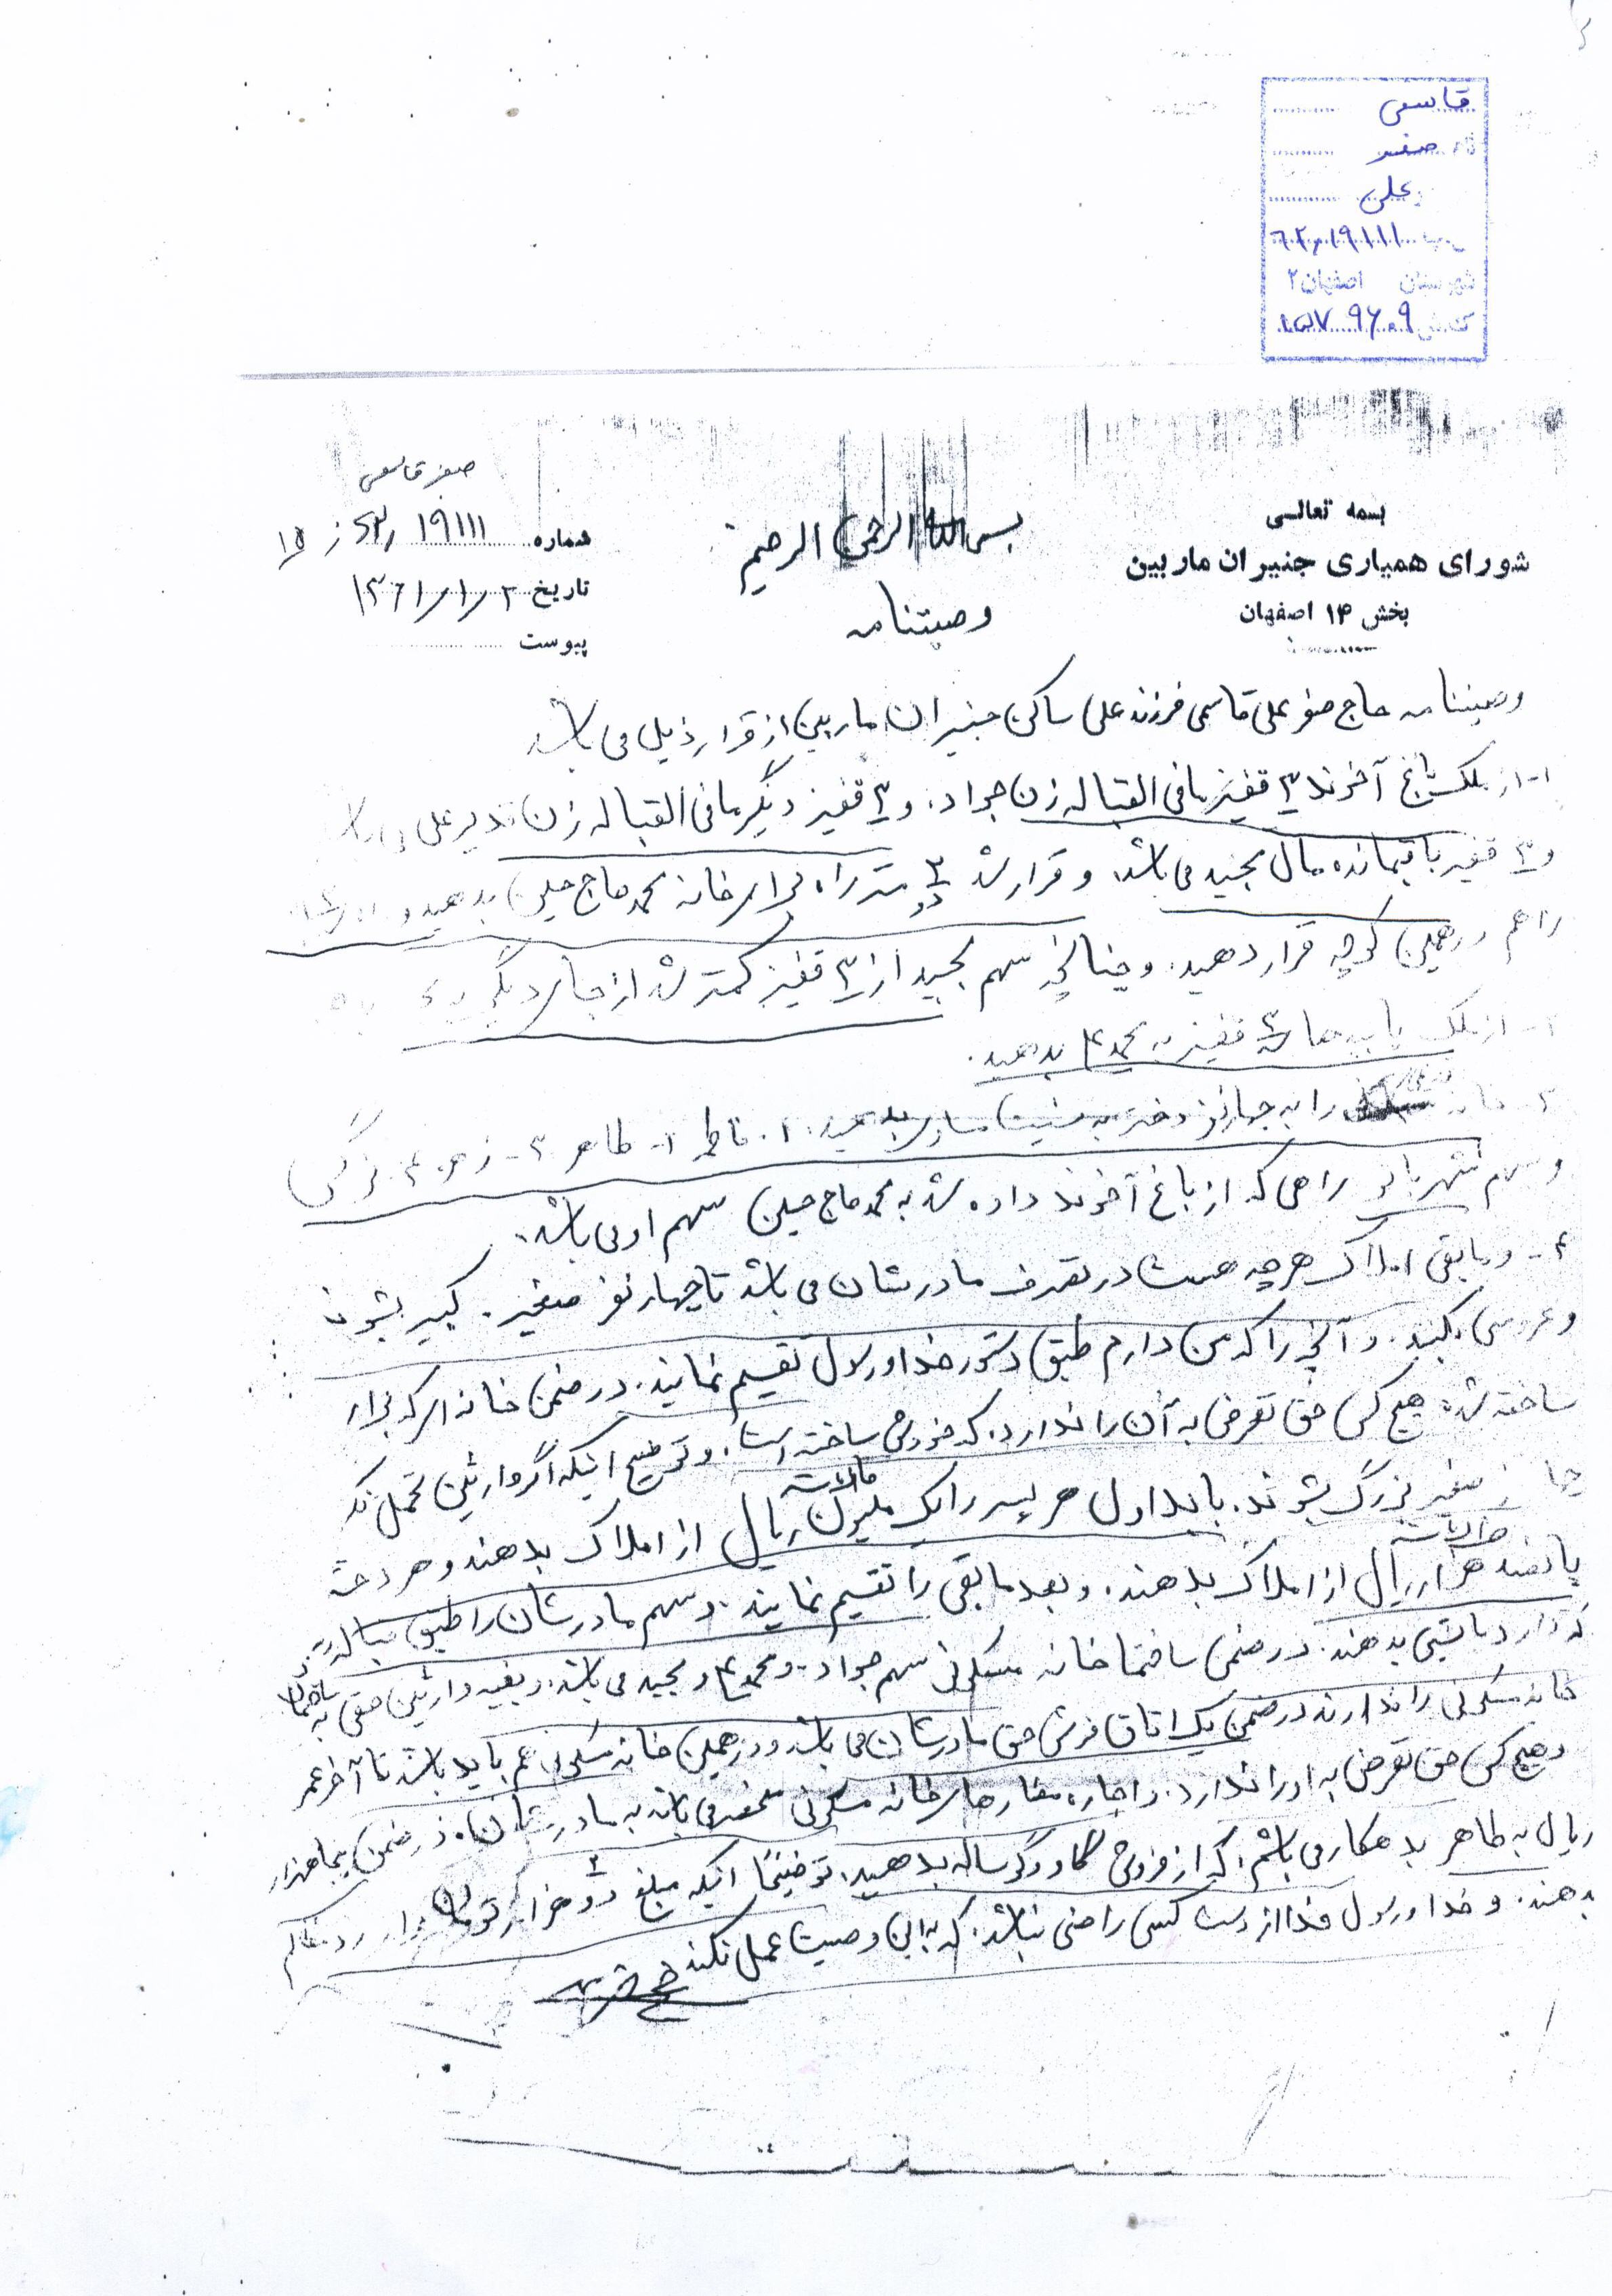 قاسمی
صفر
علی
شهرستان اصفهان ۲
صفر قاسمی
بسمه تعالی
شورای همیاری جنیران ماربین
بخش ۱۴ اصفهان
بسم الله الرحمن الرحیم
وصیتنامه
شماره ۱۹۱۱۱
تاریخ ۱۳۶۱/۱/۲
پیوست
وصیتنامه حاج صفر علی قاسمی فرزند علی ساکن جنیران ماربین از قرار ذیل می باشد
۱- از ملک باغ آخوند ۳ قفیز مافی القباله زن جواد. و ۳ قفیز دیگر مافی القباله زن
و ۳ قفیز باقیمانده مال مجید می باشد. و قرار شد ۲ دو متر راه برای خانه محمد حاج حسین بدهید و
را هم در همین کوچه قرار دهید. و چنانچه سهم مجید از ۳ قفیز کمتر شد از جای دیگر
۲- از ملک قفیز به محمد بدهید.
را به چهار نفر دختر به نسبت مساوی بدهید. ۱- فاطمه ۲- طاهره ۳- زهره ۴-
و سهم شهربانو راهی که از باغ آخوند داده شد به محمد حاج حسین سهم او می باشد.
۴- و مابقی املاک هرچه هست در تصرف مادرشان می باشد تا چهار نفر صغیر. کبیر بشوند
و عروسی بکنند. و آنچه را که من دارم طبق دستور خدا و رسول تقسیم نمایند. در ضمن خانه ای که
ساخته شده هیچ کس حق تعرض به آن را ندارد. که خودش ساخته است. و توضیح اینکه اگر وارثین تحمل نکند
صغیر بزرگ بشوند. باید اول هر پسر را یک ملیون ریال از املاک بدهند و هر دختر
پانصد هزار ریال از املاک بدهند. و بعد مابقی را تقسیم نمایند. و سهم مادرشان را طبق قباله
که دارد بایستی بدهند. در ضمن ساختما خانه مسکونی سهم جواد و محمد و مجید می باشد. و بقیه وارثین حقی به ساختمان
خانه مسکونی را ندارند در ضمن یک اتاق فرش حق مادرشان می باشد و در همین خانه مسکونی هم باید باشد تا آخر عمر
و هیچ کس حق تعرض به او را ندارد. و اجاره مغازه های خانه مسکونی منحصر می باشد به مادرشان. در ضمن پنجاهزار
ریال به طاهره بدهکار می باشم. که از فروش گاو و گوساله بدهید. توضیحاً اینکه مبلغ دو هزار تومان
بدهند. و خدا و رسول خدا از دست کسی راضی نباشد. که به این وصیت عمل نکند